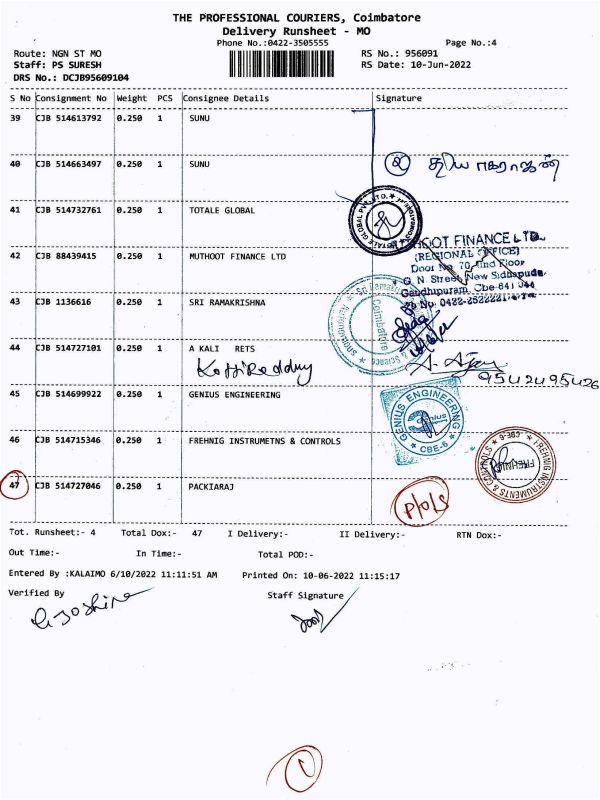 THE PROFESSIONAL COURIERS, Coimbatore
Delivery Runsheet - MO
Phone No.:0422-3505555
Page No.:4
Route: NGN ST MO
RS No.: 956091
Staff: PS SURESH
RS Date: 10-Jun-2022
DRS No.: DCJB95609104
S No Consignment No Weight PCS Consignee Details Signature
39 CJB 514613792 0.250 1 SUNU
40 CJB 514663497 0.250 1 SUNU
41 CJB 514732761 0.250 1 TOTALE GLOBAL
TOTALE GLOBAL PVT. LTD.
42 CJB 88439415 0.250 1 MUTHOOT FINANCE LTD
HOOT FINANCE LTD.
(REGIONAL OFFICE)
Door No 70, IInd Floor
G N Street, New Sidhapudur
Gandhipuram, Cbe-641 044
43 CJB 1136616 0.250 1 SRI RAMAKRISHNA
Coimbatore
44 CJB 514727101 0.250 1 A KALI RETS
KotiReddy
9542495426
45 CJB 514699922 0.250 1 GENIUS ENGINEERING
GENIUS ENGINEERING
CBE-6
46 CJB 514715346 0.250 1 FREHNIG INSTRUMETNS & CONTROLS
FREHNIG INSTRUMENTS & CONTROLS
CBE-6
47 CJB 514727046 0.250 1 PACKIARAJ
P/O/S
Tot. Runsheet:- 4 Total Dox:- 47 I Delivery:- II Delivery:- RTN Dox:-
Out Time:- In Time:- Total POD:-
Entered By :KALAIMO 6/10/2022 11:11:51 AM Printed On: 10-06-2022 11:15:17
Verified By Staff Signature
1